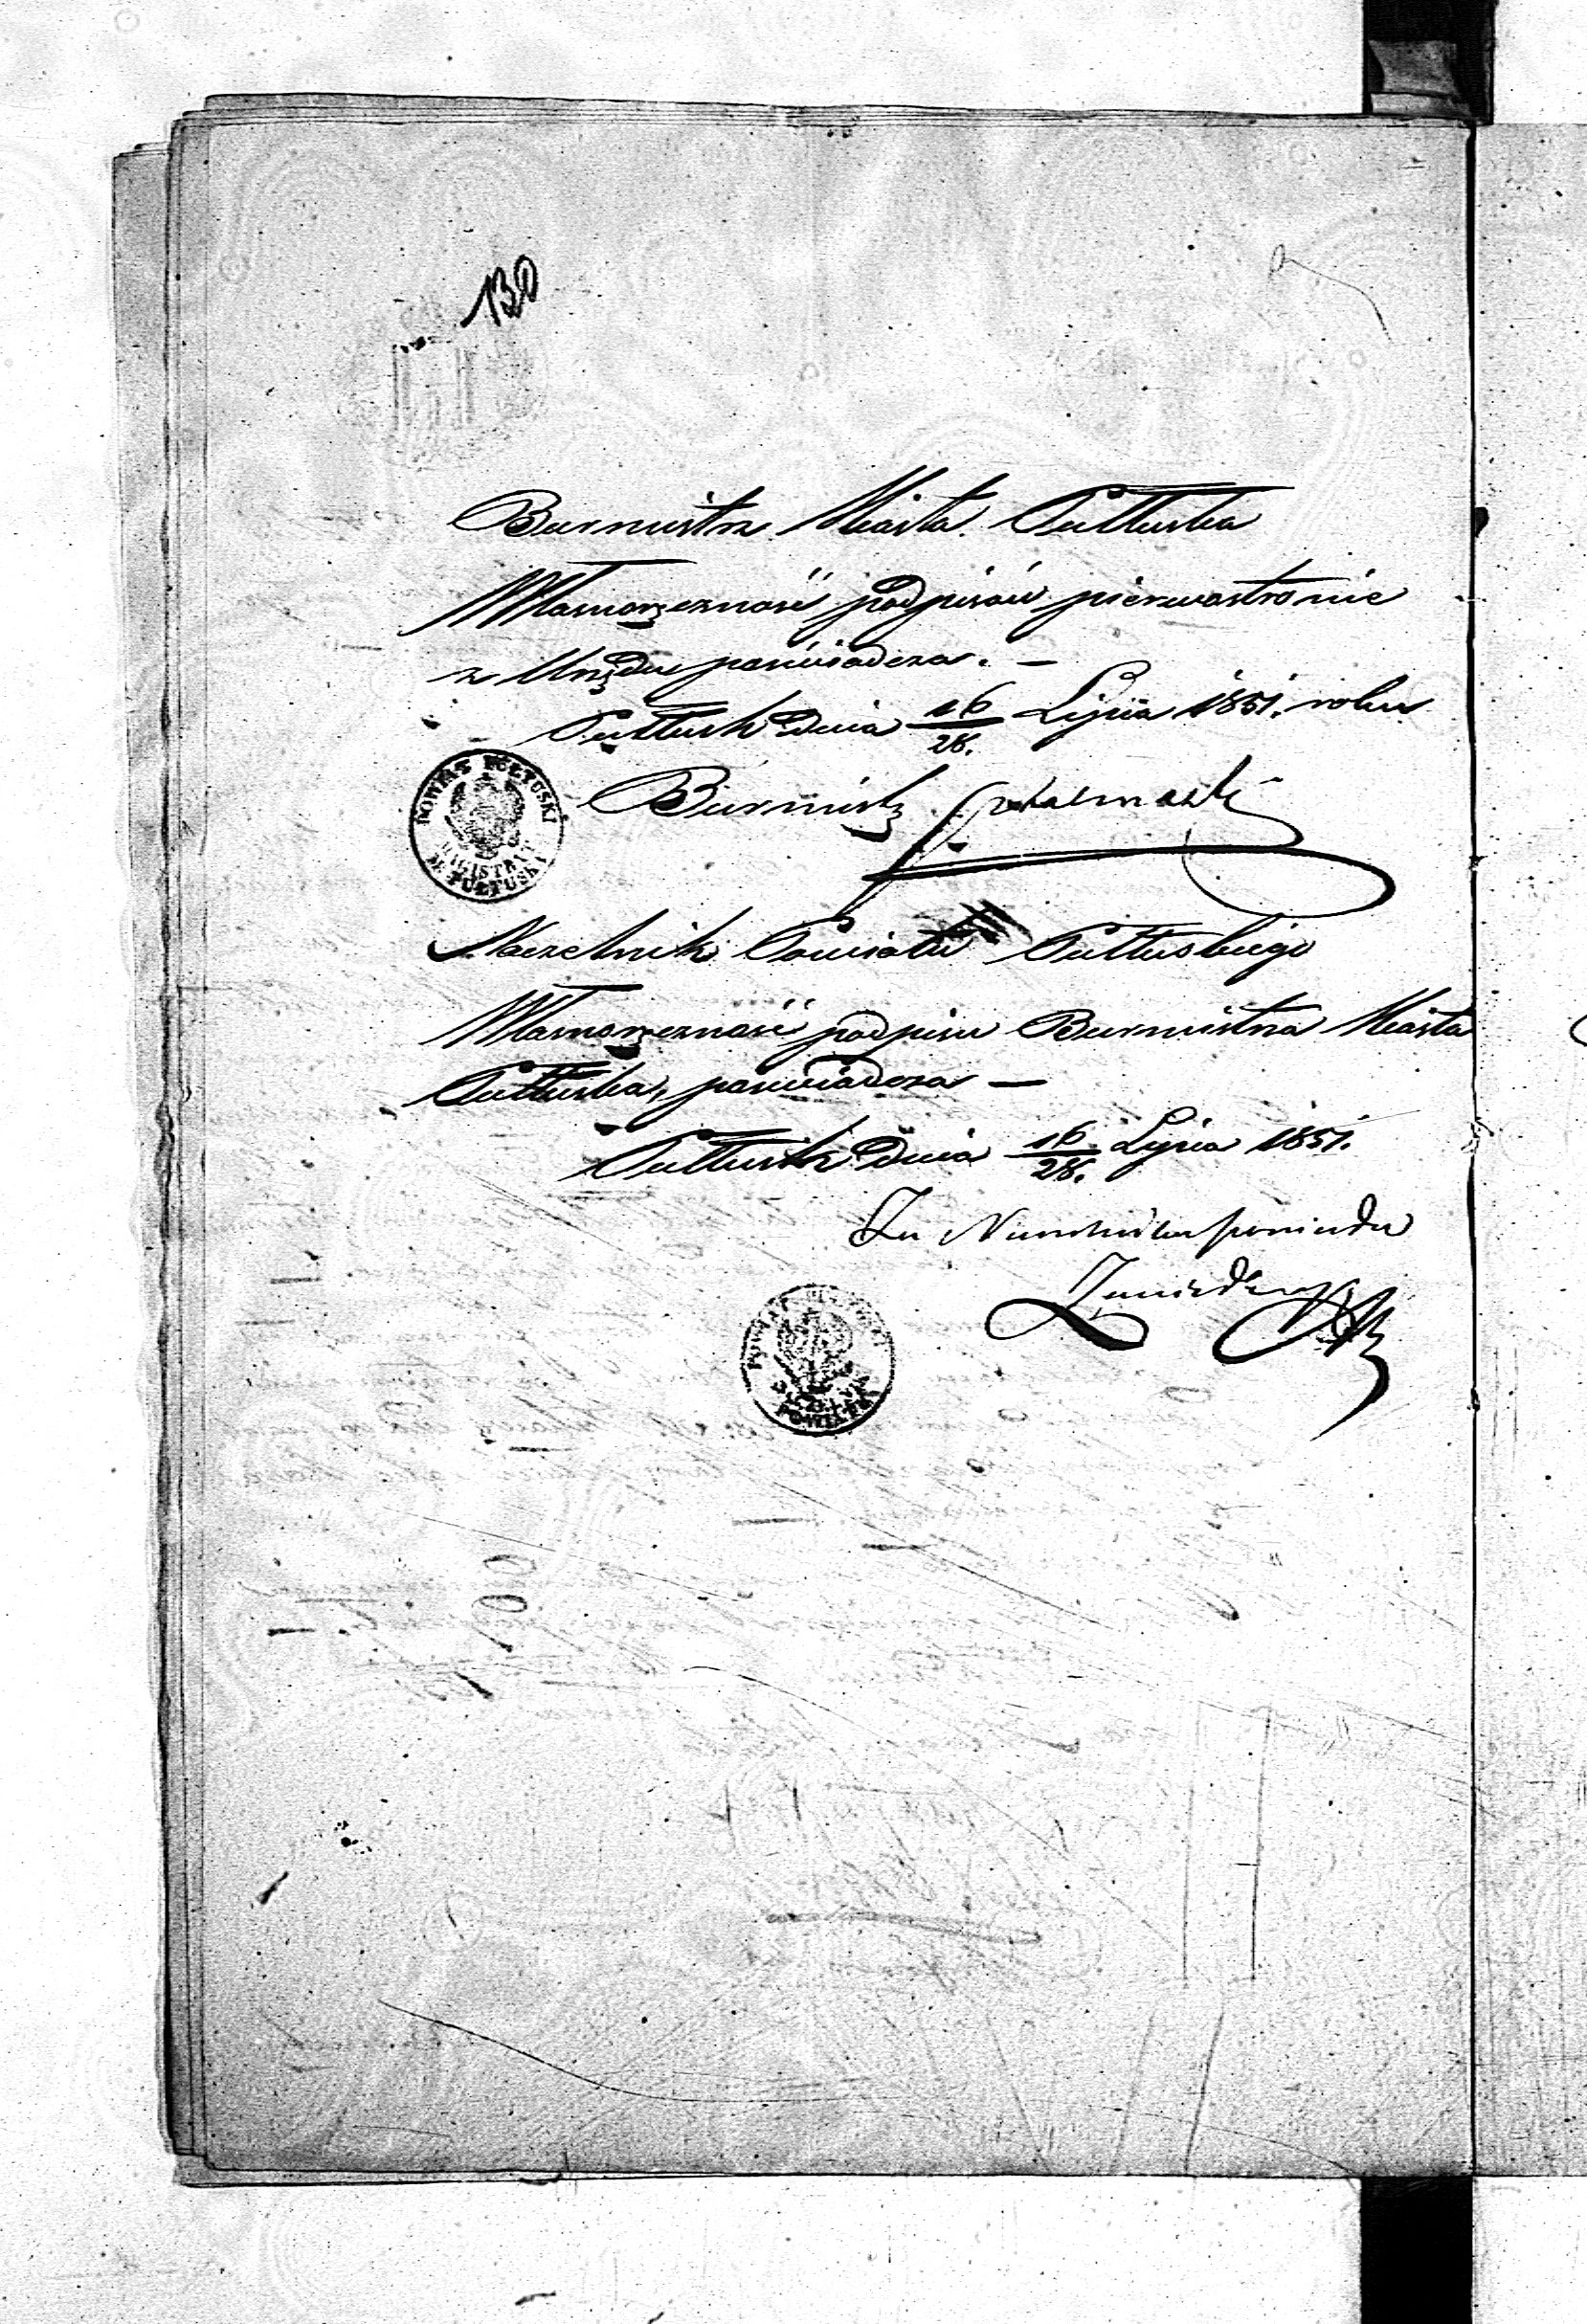 130
Burmistrz Miasta Pułtuska
Własnoręczność podpisów pierwostronie
z Urzędu poświadcza. —
Pułtusk dnia 16/28. Lipca 1851. roku
POWIAT PUŁTUSKI
MAGISTRAT
M. PUŁTUSKA
Burmistrz
Naczelnik Powiatu Pułtuskiego
Własnoręczność podpisu Burmistrza Miasta
Pułtuska, poświadcza —
Pułtusk dnia 16/28. Lipca 1851.
Za Naczelnika powiatu
POWIAT
POWIATU